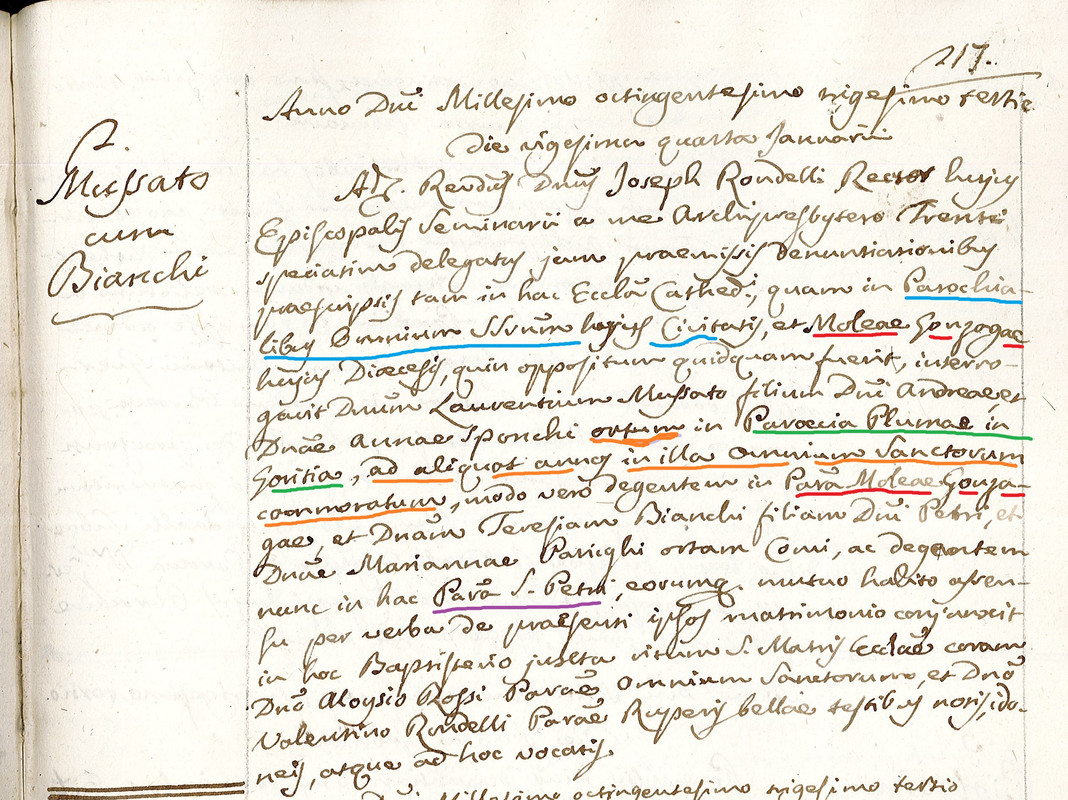 217.
Anno Dni Millesimo octingentesimo trigesimo tertio
die vigesima quarta Januarii
2.
Mussato
cum
Bianchi
Rendus Dnus Joseph Rondelli Rector hujus
Episcopalis Seminarii a me Archipresbytero Trenti
speciatim delegatus jam praemissis denuntiationibus
praescriptis tam in hac Ecclã Cathedi, quam in Parochia-
libus Omnium SSrum hujus Civitatis, et Moleae Gonzogae
hujus Dioecesis, quin oppositum quidquam fuerit, interro-
gavit Dnum Laurentium Mussato filium Dni Andreae, et
Dnae Annae Sponchi ortum in Paroecia Plumae in
Goritia, ad aliquot annos in illa Omnium Sanctorum
commoratum, modo vero degentem in Parã Moleae Gonza-
gae, et Dnam Teresiam Bianchi filiam Dni Petri, et
Dnae Mariannae Parighi ortam Comi, ac degentem
nunc in hac Parã S. Petri, eorumq. mutuo habito assen-
su per verba de praesenti ipsos matrimonio conjunxit
in hoc Baptisterio juxta ritum S. Matris Ecclae coram
Dno Aloysio Rossi Parae Omnium Sanctorum, et Dno
Valentino Rondelli Parae Ruperis bellae testibus notis, ido-
neis, atque ad hoc vocatis.
Millesimo octingentesimo trigesimo tertio